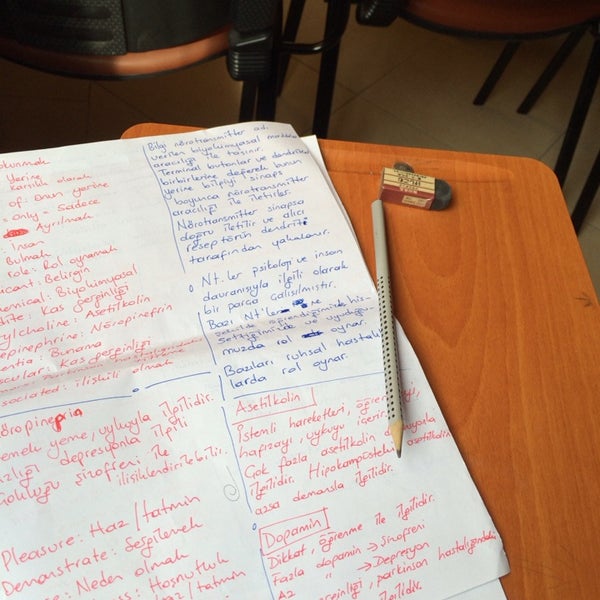 okunmak
Yerine
Karşılık olarak
of: Onun yerine
Only = Sadece
Ayrılmak
İnsan
Bulmak
role: Rol oynamak
icant: Belirgin
hemical: Biyokimyasal
Kas gerginliği
tylcholine: Asetilkolin
epinephrine: Nöropinefrin
entia: Bunama
scular: Kas gerginliği
ssociated: ilişkili olmak
öropinefrin
emek yeme, uykuyla ilgilidir.
azlığı depresyonla ilgili
çokluğu şizofreni ile
ilişkilendirilebilir.
Pleasure: Haz / tatmin
Demonstrate: Sergilemek
Neden olmak
ss: Hoşnutluk
Haz/tatmin
Bilgi nörotransmitter adı
verilen biyokimyasal maddeler
aracılığı ile taşınır.
Terminal butonlar ve dendritler
birbirlerine değerek bunun
yerine bilgiyi sinaps
boyunca nörotransmitter
aracılığı ile iletirler.
Nörotransmitter sinapsa
doğru iletilir ve alıcı
reseptörün dendriti
tarafından yakalanır.
Nt.ler psikoloji ve insan
davranışıyla ilgili olarak
bir parça çalışılmıştır.
Bazı Nt'ler ne
şekilde öğrendiğimizde his-
settiğimizde ve uyuduğu-
muzda rol oynar.
Bazıları ruhsal hastalık
larda rol oynar.
Asetilkolin
İstemli hareketleri, öğrenmeyi,
hafızayı, uykuyu içerir.
Çok fazla asetilkolin
ilgilidir. Hipokampüsteki asetilkolin
azsa demansla ilgilidir.
Dopamin
Dikkat, öğrenme ile ilgilidir.
Fazla dopamin → Şizofreni
Az " → Depresyon
gerginliği, parkinson hastalığındaki
ilgilidir.